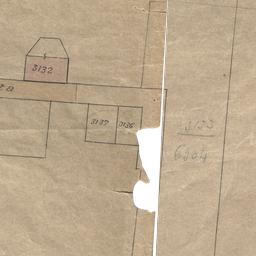 3132
3137
3136
3133
6304